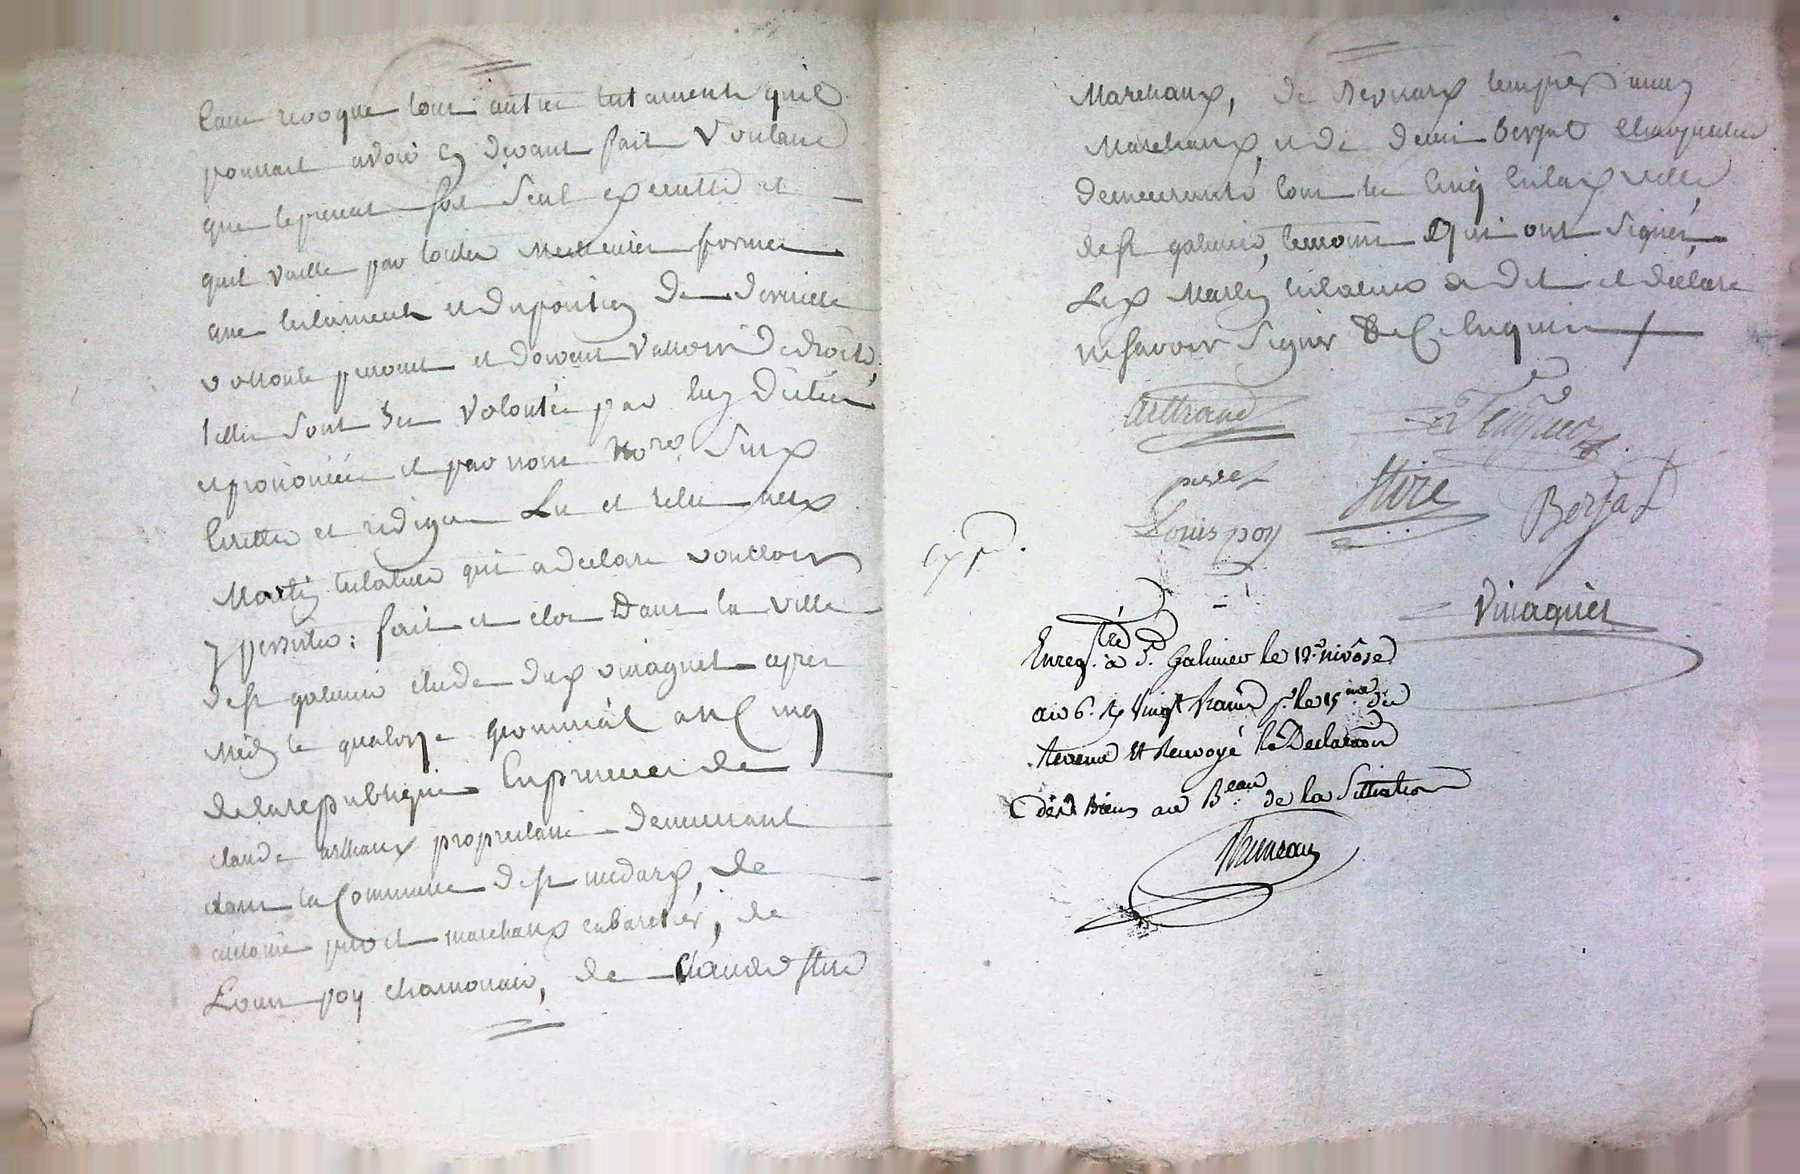 revoque tous autres testaments quil
pourroit avoir cy devant fait voulant
que le present soit seul executté et
quil vaille par toutes Meilleures formes
que testament et disposition De derniere
vollonte peuvent et doivent valloir De droit,
telles sont ses volontés par luy Dictées
et prononcées et par nous Nore. Sus
Ecrittes et redigées Lu et relu aux
Martin testateur qui a declare voulloir
y persister : fait et clos Dans la ville
de st galmier etude Du vinagnet apres
Midy le quatorze germinal an Cinq
de la republique En presence de
claude proprietaire Demeurant
dans la Commune De st medard, de
antoine marchand cabaretier, de
Louis poy chamoniaux, de Claude Stire
Marchand, De Bernard
Marchand, et de Denis Berjat
demeurants tous les Cinq en lad ville
de st galmier, temoins Qui ont Signés,
Led Martin testateur a Dit et declare
ne savoir Signer De Ce Enquis
arthaud
Stire
Berjat
Louis poy
Vinagnet
Enregtré à St. Galmier le 12. nivôse
an 6. R vingt francs pr. le 15me du
revenu Et Renvoyé la Declaration
desd Biens au Beau de la Situation